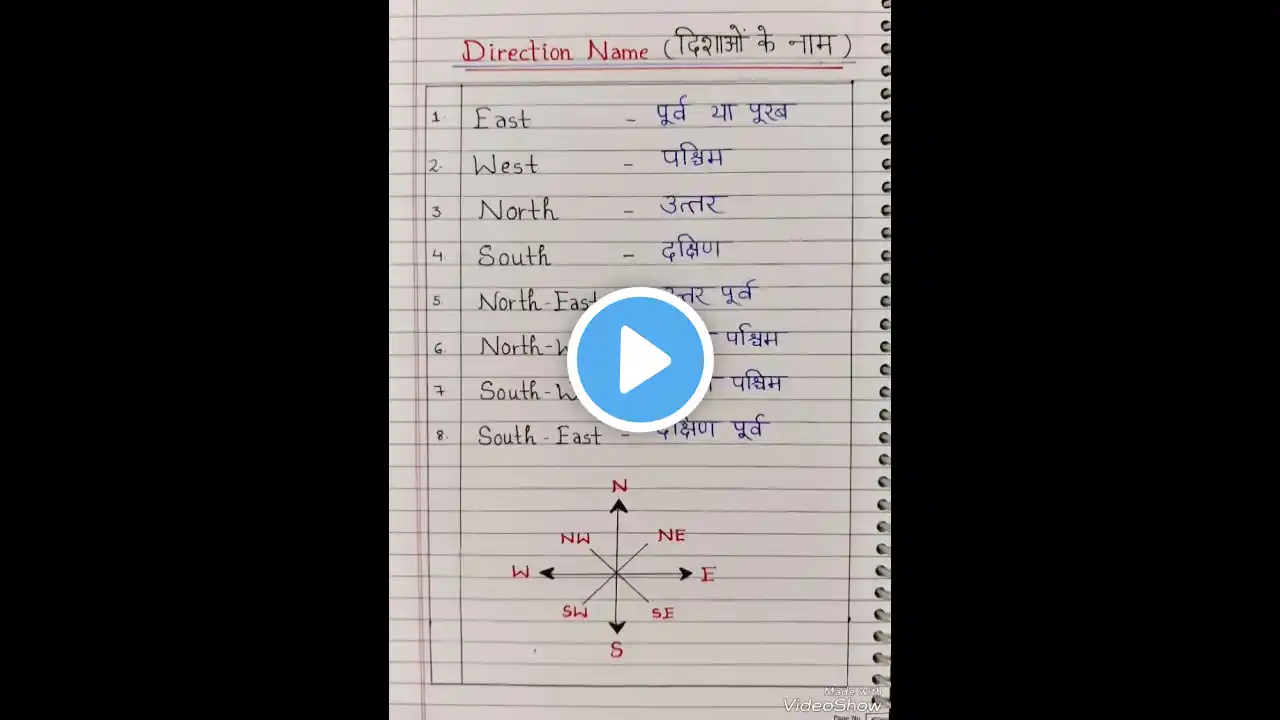 Direction Name (दिशाओं के नाम)
1. East - पूर्व या पूरब
2. West - पश्चिम
3 North - उत्तर
4. South - दक्षिण
5 North-East पूर्व
6. पश्चिम
7 पश्चिम
8. South-East - दक्षिण पूर्व
N
NW NE
W E
SW SE
S
Made with
VideoShow
Page No.